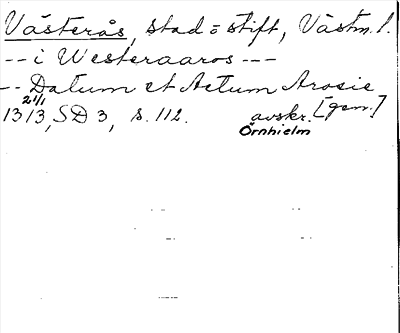 Västerås, stad o stift, Västm. l.
-- i Westeraaros ---
-- Datum et Actum Arosie
21/1 [gem.]
1313, SD 3, s. 112. avskr.
Örnhielm